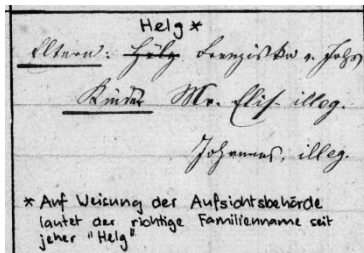 Helg *
Eltern: Hölg Franziska v. Johs
Kinder Mr. Elis. illeg.
Johannes, illeg.
* Auf Weisung der Aufsichtsbehörde
lautet der richtige Familienname seit
jeher "Helg"